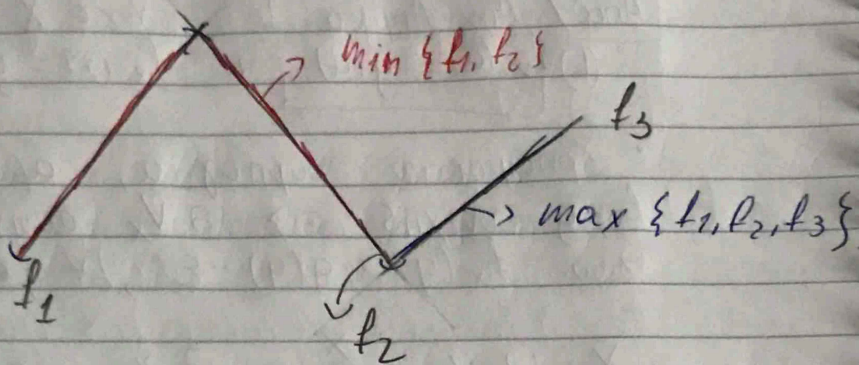 min {f1, f2}
f3
max {f1, f2, f3}
f1
f2